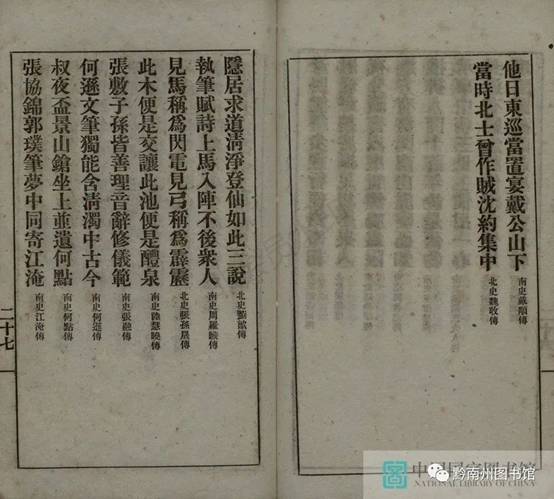 他日東巡當置宴戴公山下 南史戴顒傳
當時北士曾作賊沈約集中 北史魏收傳
隱居求道清淨登仙如此三說
執筆賦詩上馬入陣不後衆人 南史周羅睺傳
見馬稱爲閃電見弓稱爲霹靂 北史長孫晟傳
此木便是交讓此池便是醴泉 南史陸慧曉傳
張敷子孫皆善理音辭修儀範 南史張融傳
何遜文筆獨能含清濁中古今 南史何遜傳
叔夜盃景山鎗坐上並遺何點 南史何點傳
張協錦郭璞筆夢中同寄江淹 南史江淹傳
二十七
中国国家图书馆
NATIONAL LIBRARY OF CHINA
黔南州图书馆